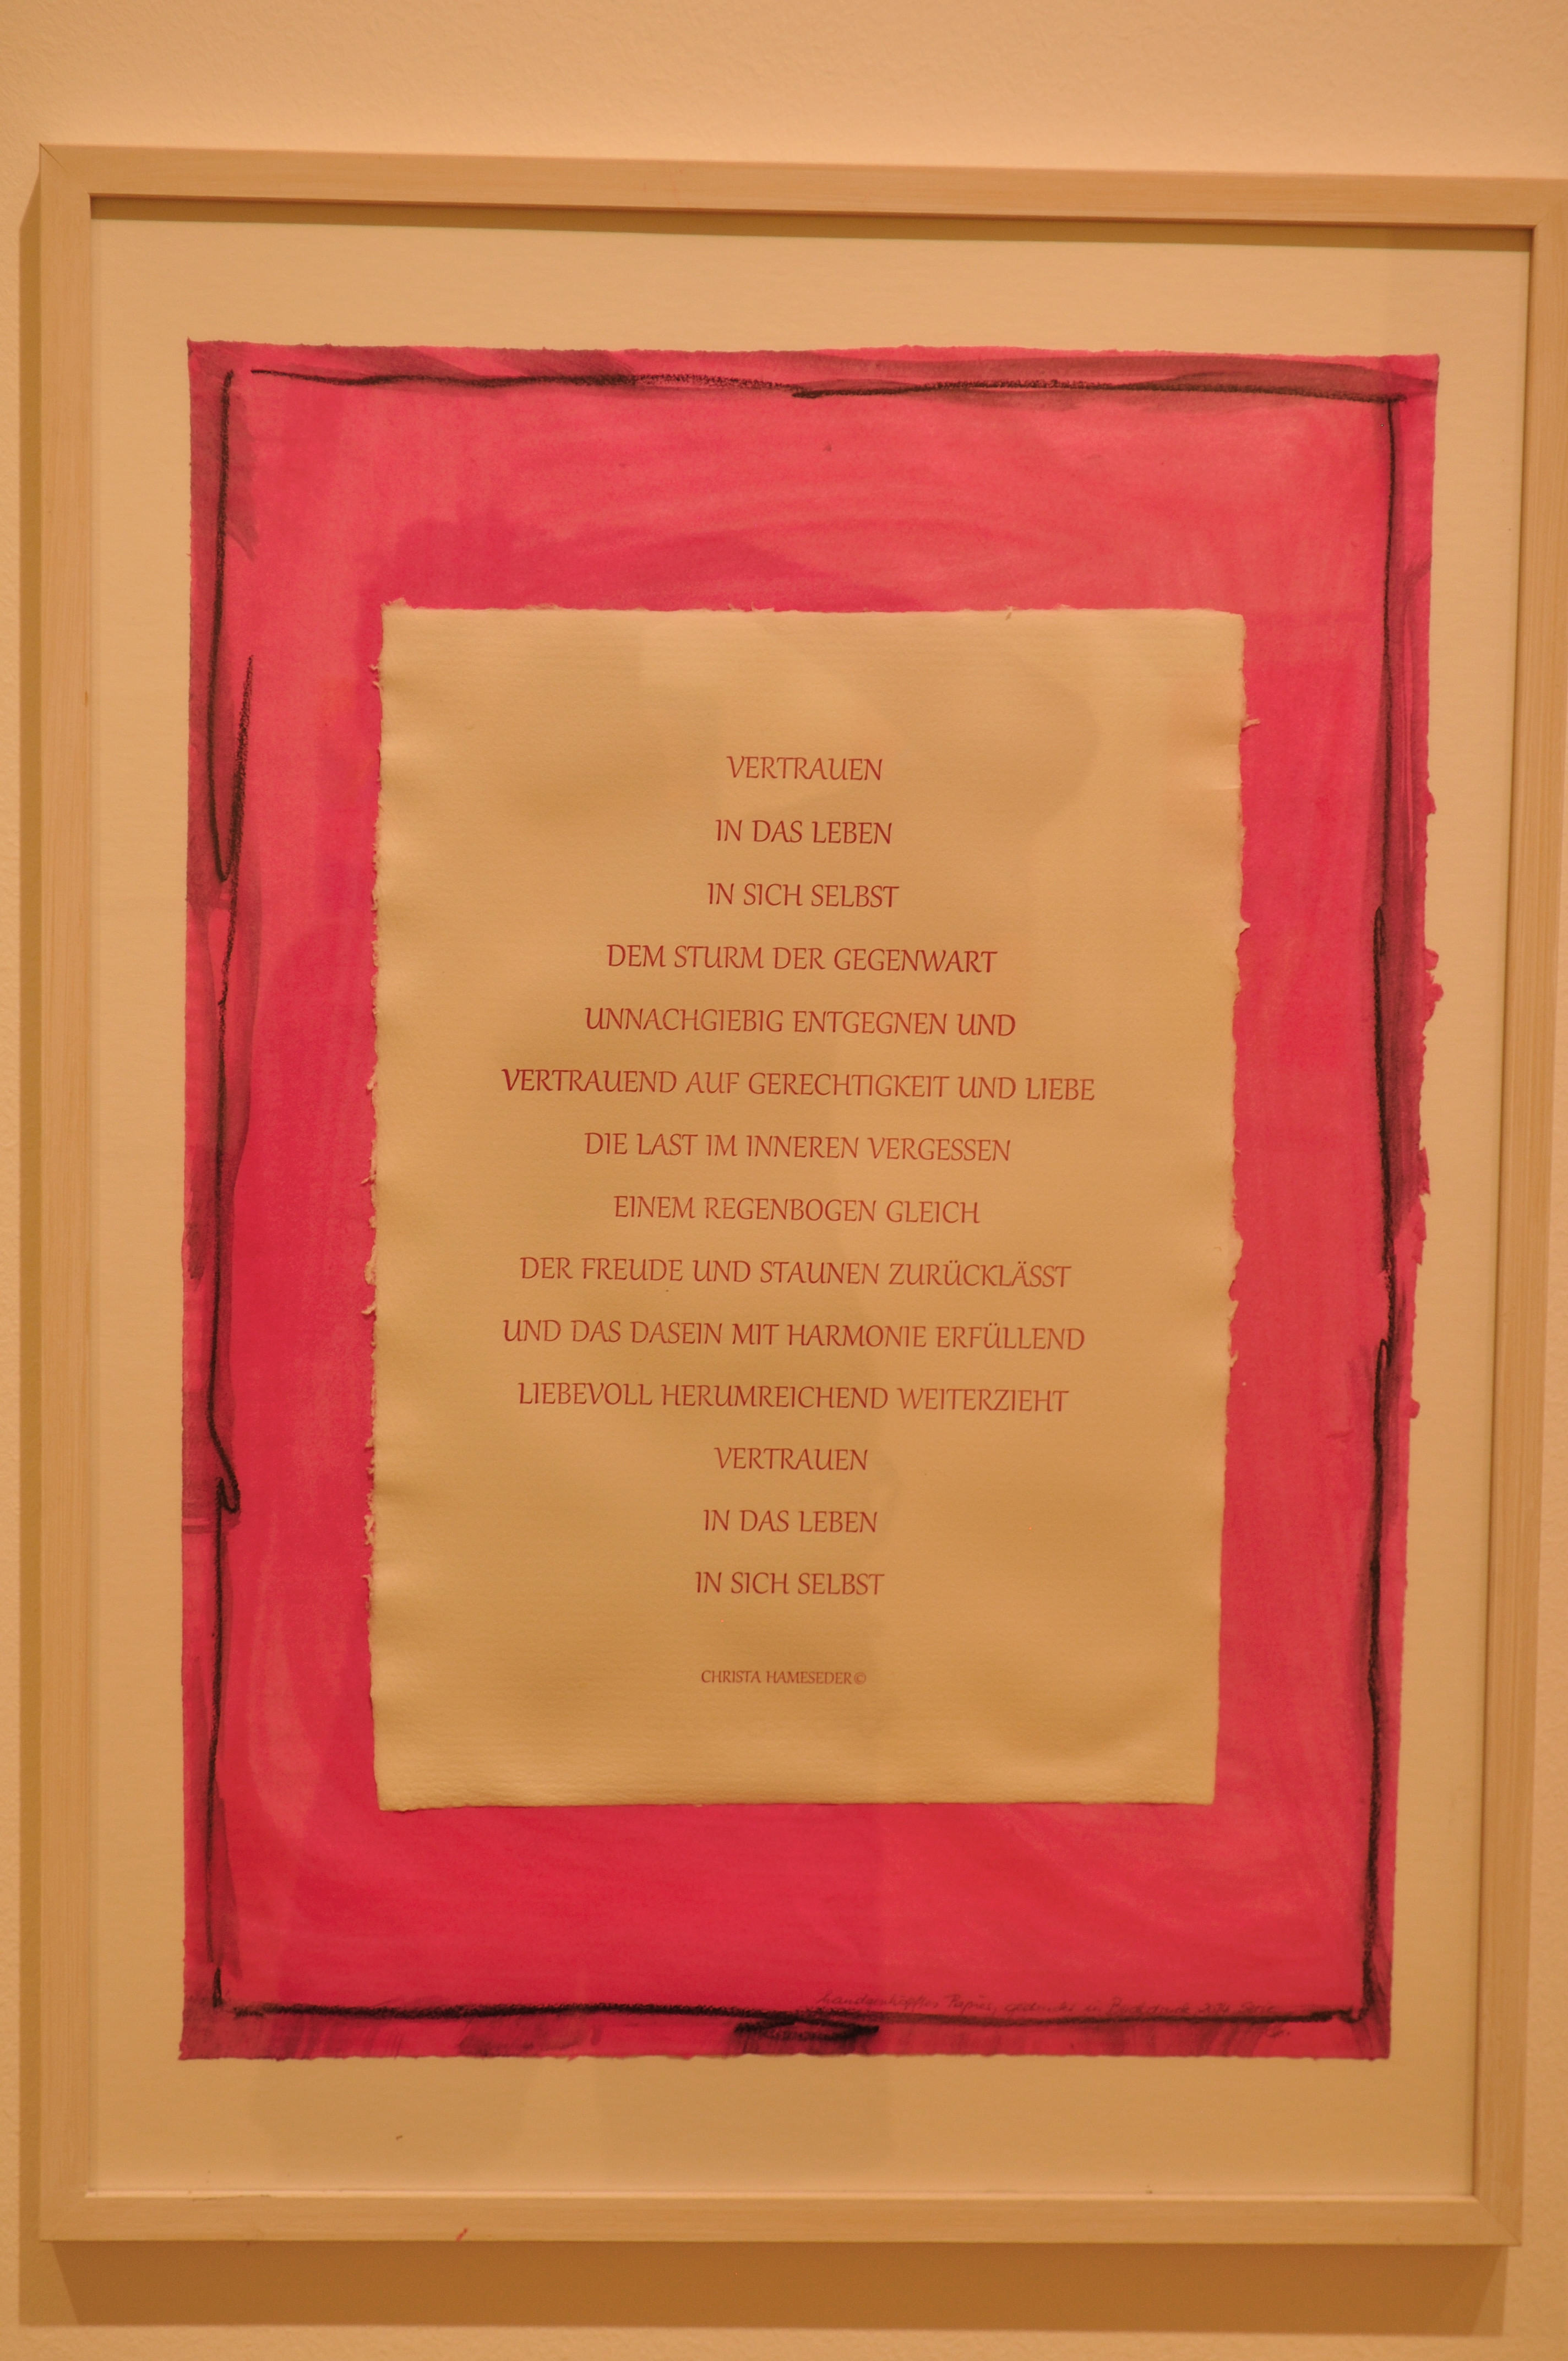 VERTRAUEN
IN DAS LEBEN
IN SICH SELBST
DEM STURM DER GEGENWART
UNNACHGIEBIG ENTGEGNEN UND
VERTRAUEND AUF GERECHTIGKEIT UND LIEBE
DIE LAST IM INNEREN VERGESSEN
EINEM REGENBOGEN GLEICH
DER FREUDE UND STAUNEN ZURÜCKLÄSST
UND DAS DASEIN MIT HARMONIE ERFÜLLEND
LIEBEVOLL HERUMREICHEND WEITERZIEHT
VERTRAUEN
IN DAS LEBEN
IN SICH SELBST
CHRISTA HAMESEDER©
Papier,